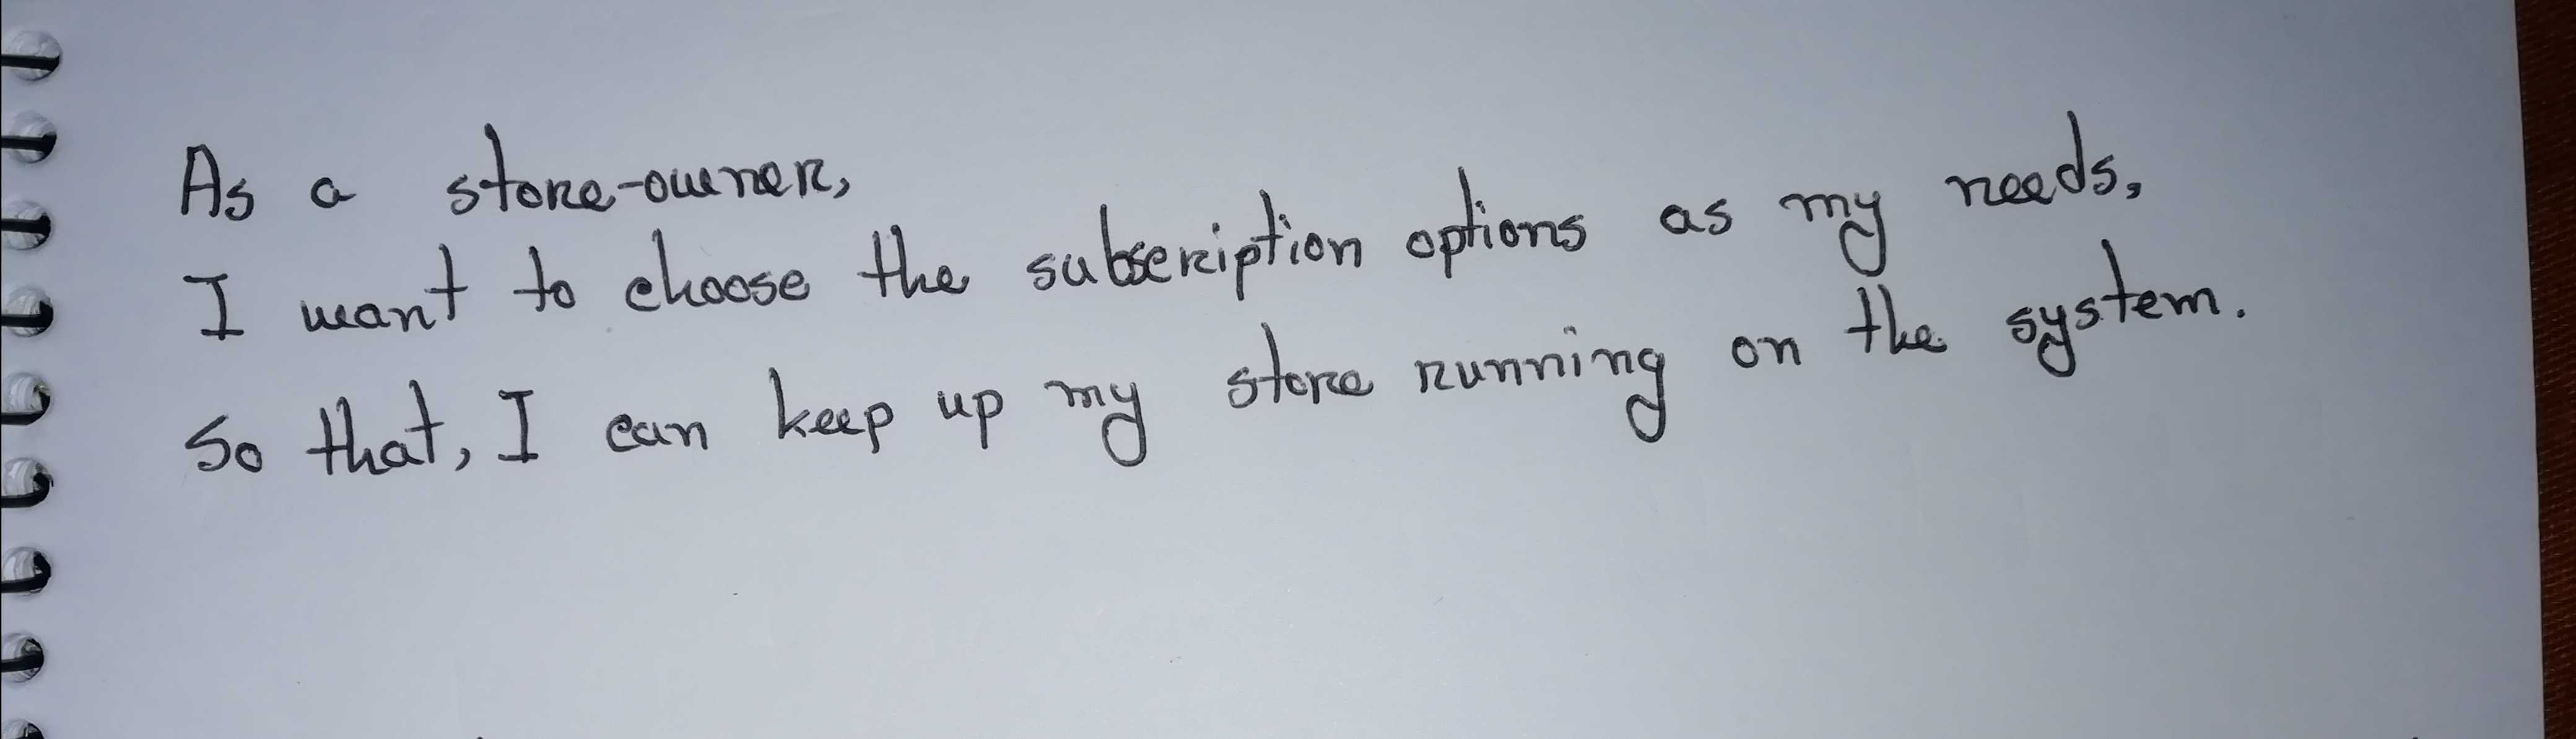 As a store-owner,
I want to choose the subscription options as my needs,
So that, I can keep up my store running on the system.